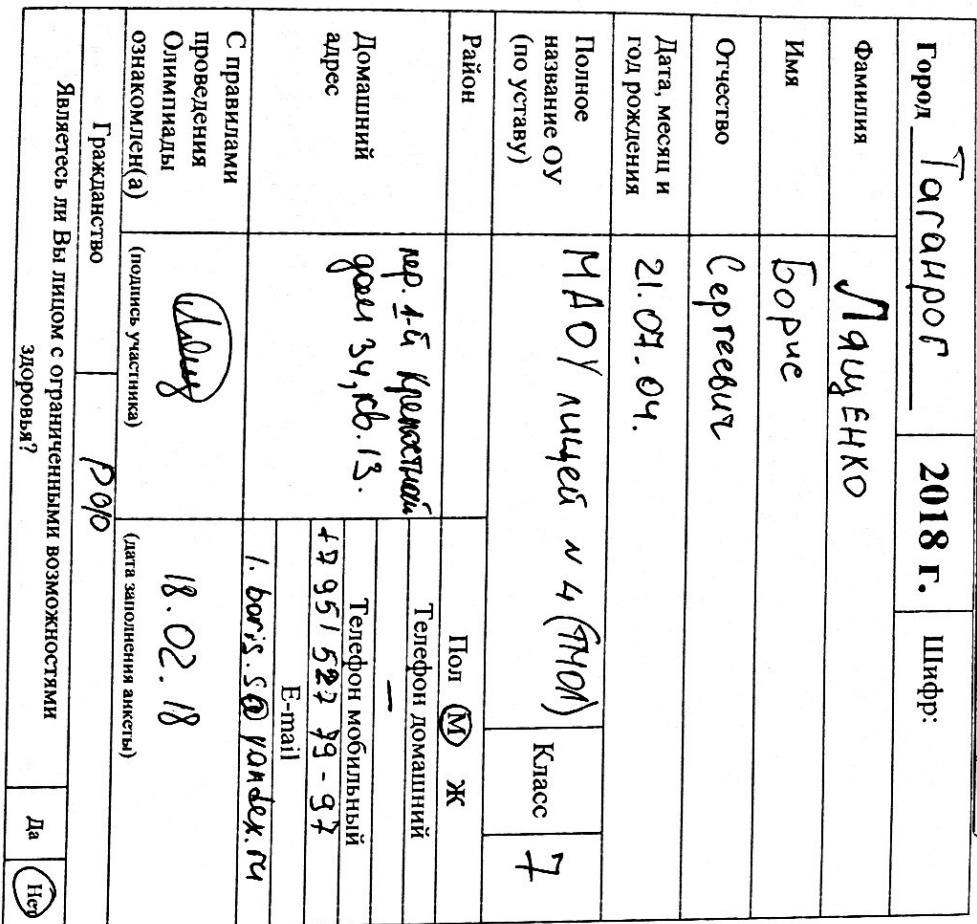 Город Таганрог 2018 г. Шифр:
Фамилия Лященко
Имя Борис
Отчество Сергеевич
Дата, месяц и
год рождения 21.07.04.
Полное
название ОУ
(по уставу) МАОУ лицей N 4 (ТМОЛ) Класс 7
Район Пол М Ж
Домашний
адрес пер. 1-й Крепостной
дом 34, кв. 13.
Телефон домашний
—
Телефон мобильный
+7 951 527 79-97
E-mail
l.boris.s@yandex.ru
С правилами
проведения
Олимпиады
ознакомлен(а)
(подпись участника)
18.02.18
(дата заполнения анкеты)
Гражданство РФ
Являетесь ли Вы лицом с ограниченными возможностями
здоровья? Да Нет